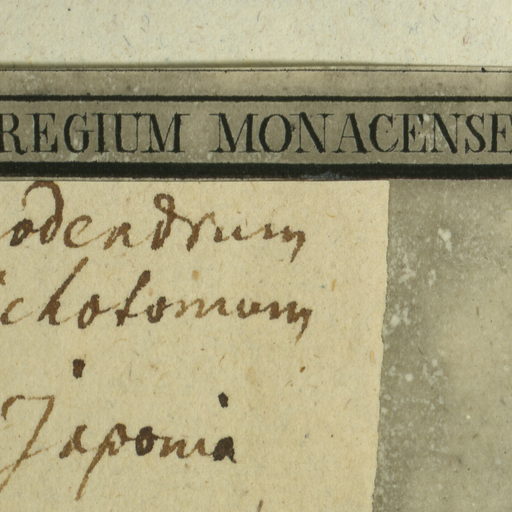 REGIUM MONACENSE
odendrum
ichotomum
Japonia